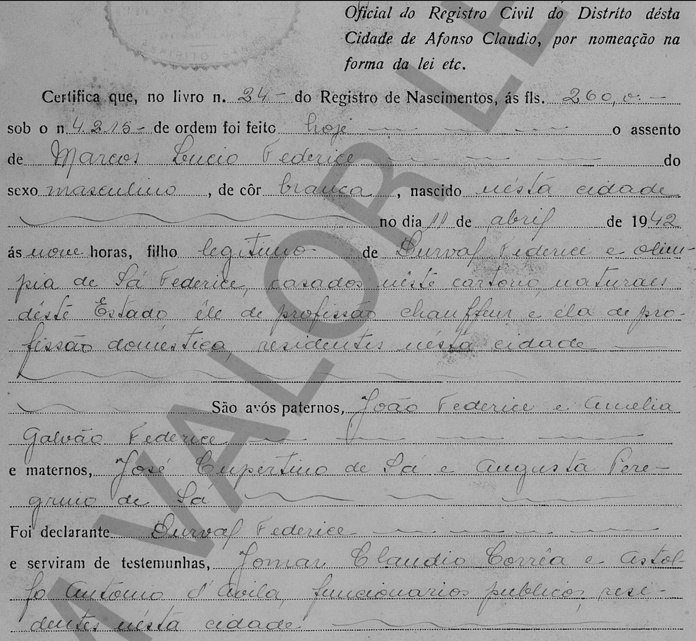 Oficial do Registro Civil do Distríto désta
Cidade de Afonso Claudio, por nomeação na
forma da lei etc.
Certifica que, no livro n. 24 do Registro de Nascimentos, ás fls. 260,
sob o n. 4.215 de ordem foi feito hoje o assento
de Marcos Lucio Federice do
sexo masculino, de côr branca, nascido nésta cidade
no dia 11 de abril de 1942
ás nove horas, filho legitimo de Durval Federice e olim-
pia de Sá Federice, casados néste cartorio naturaes
déste Estado éle de profissão chauffeur e éla de pro-
fissão doméstica, residentes nésta cidade
São avós paternos, João Federice e Amelia
Galvão Federice
e maternos, José Cupertino de Sá e Augusta Pere-
grino de Sá
Foi declarante Durval Federice
e serviram de testemunhas, Jomar Claudio Corrêa e Astol-
fo Antonio d'Avila, funcionarios publicos, resi-
dentes nésta cidade
M VALOR LE